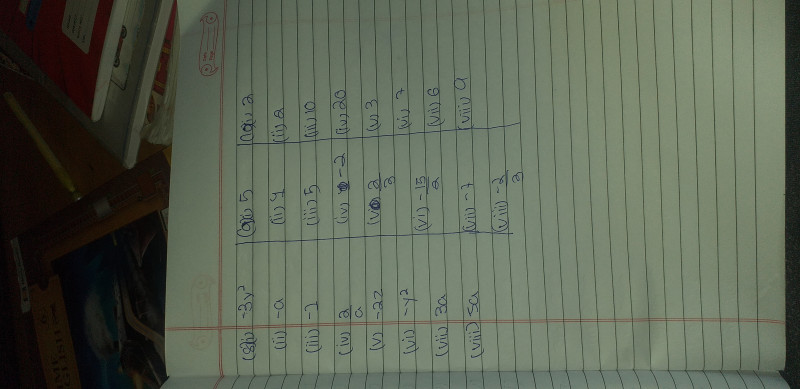 (i) -3y²
(ii) -a
(iii) -1
(iv) 2/a
(v) -2z
(vi) -y²
(vii) 3a
(viii) 5a
(i) 5
(ii) 4
(iii) 5
(iv) -2
(v) 2/3
(vi) -15/2
(vii) -7
(viii) -2/3
(i) 2
(ii) 2
(iii) 10
(iv) 20
(v) 3
(vi) 7
(vii) 6
(viii) 9